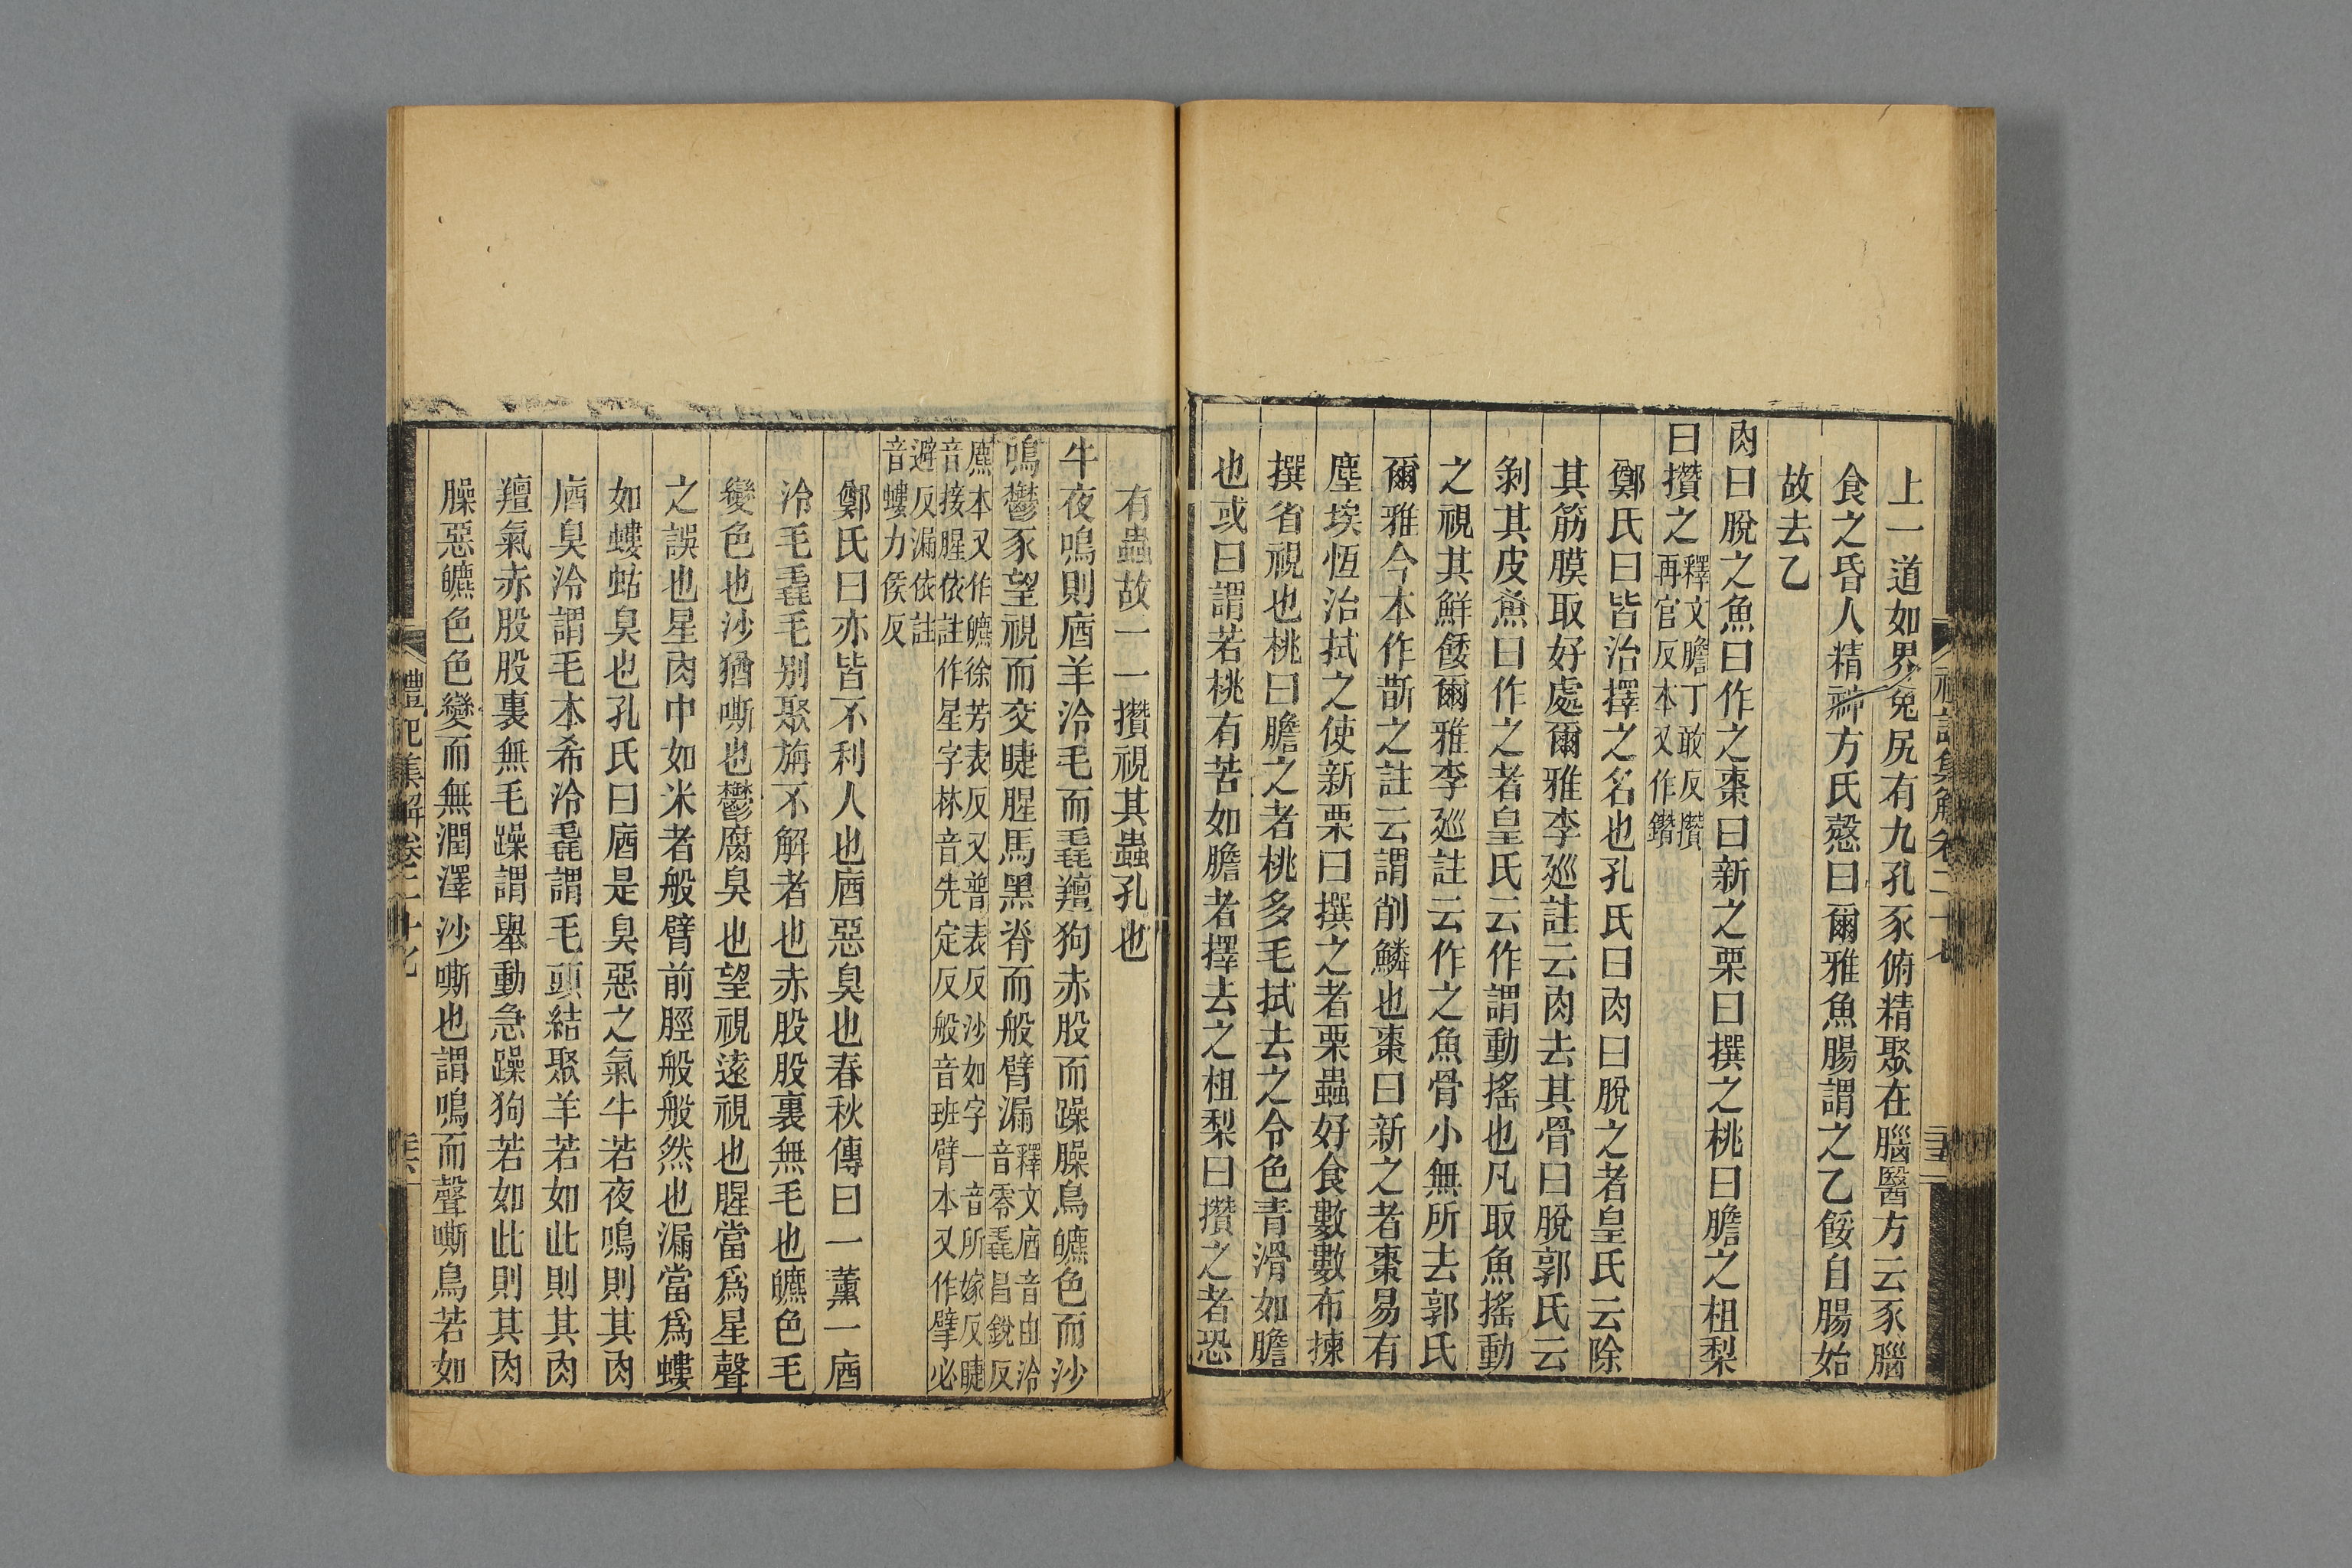 上一道如界兔尻有九孔豕俯精聚在腦醫方云豕腦
食之昏人精神方氏慤曰爾雅魚腸謂之乙餒自腸始
故去乙
肉曰脫之魚曰作之棗曰新之栗曰撰之桃曰膽之柤梨
曰攢之釋文膽丁敢反攢
再官反本又作鑽
鄭氏曰皆治擇之名也孔氏曰肉曰脫之者皇氏云除
其筋膜取好處爾雅李廵註云肉去其骨曰脫郭氏云
剝其皮魚曰作之者皇氏云作謂動搖也凡取魚搖動
之視其鮮餧爾雅李廵註云作之魚骨小無所去郭氏
爾雅今本作斮之註云謂削鱗也棗曰新之者棗易有
塵埃恆治拭之使新栗曰撰之者栗蟲好食數數布揀
撰省視也桃曰膽之者桃多毛拭去之令色青滑如膽
也或曰謂若桃有苦如膽者擇去之柤梨曰攢之者恐
有蟲故一一攢視其蟲孔也
牛夜鳴則庮羊泠毛而毳羶狗赤股而躁臊鳥皫色而沙
鳴鬱豕望視而交睫腥馬黑脊而般臂漏釋文庮音由泠
音零毳昌銳反
麃本又作皫徐芳表反又普表反沙如字一音所嫁反睫
音接腥依註作星字林音先定反般音班臂本又作擘必
避反漏依註
音螻力侯反
鄭氏曰亦皆不利人也庮惡臭也春秋傳曰一薰一庮
泠毛毳毛別聚旃不解者也赤股股裏無毛也皫色毛
變色也沙猶嘶也鬱腐臭也望視遠視也腥當爲星聲
之誤也星肉中如米者般臂前脛般般然也漏當爲螻
如螻蛄臭也孔氏曰庮是臭惡之氣牛若夜鳴則其肉
庮臭泠謂毛本希泠毳謂毛頭結聚羊若如此則其肉
羶氣赤股股裏無毛躁謂舉動急躁狗若如此則其肉
臊惡皫色色變而無潤澤沙嘶也謂鳴而聲嘶鳥若如